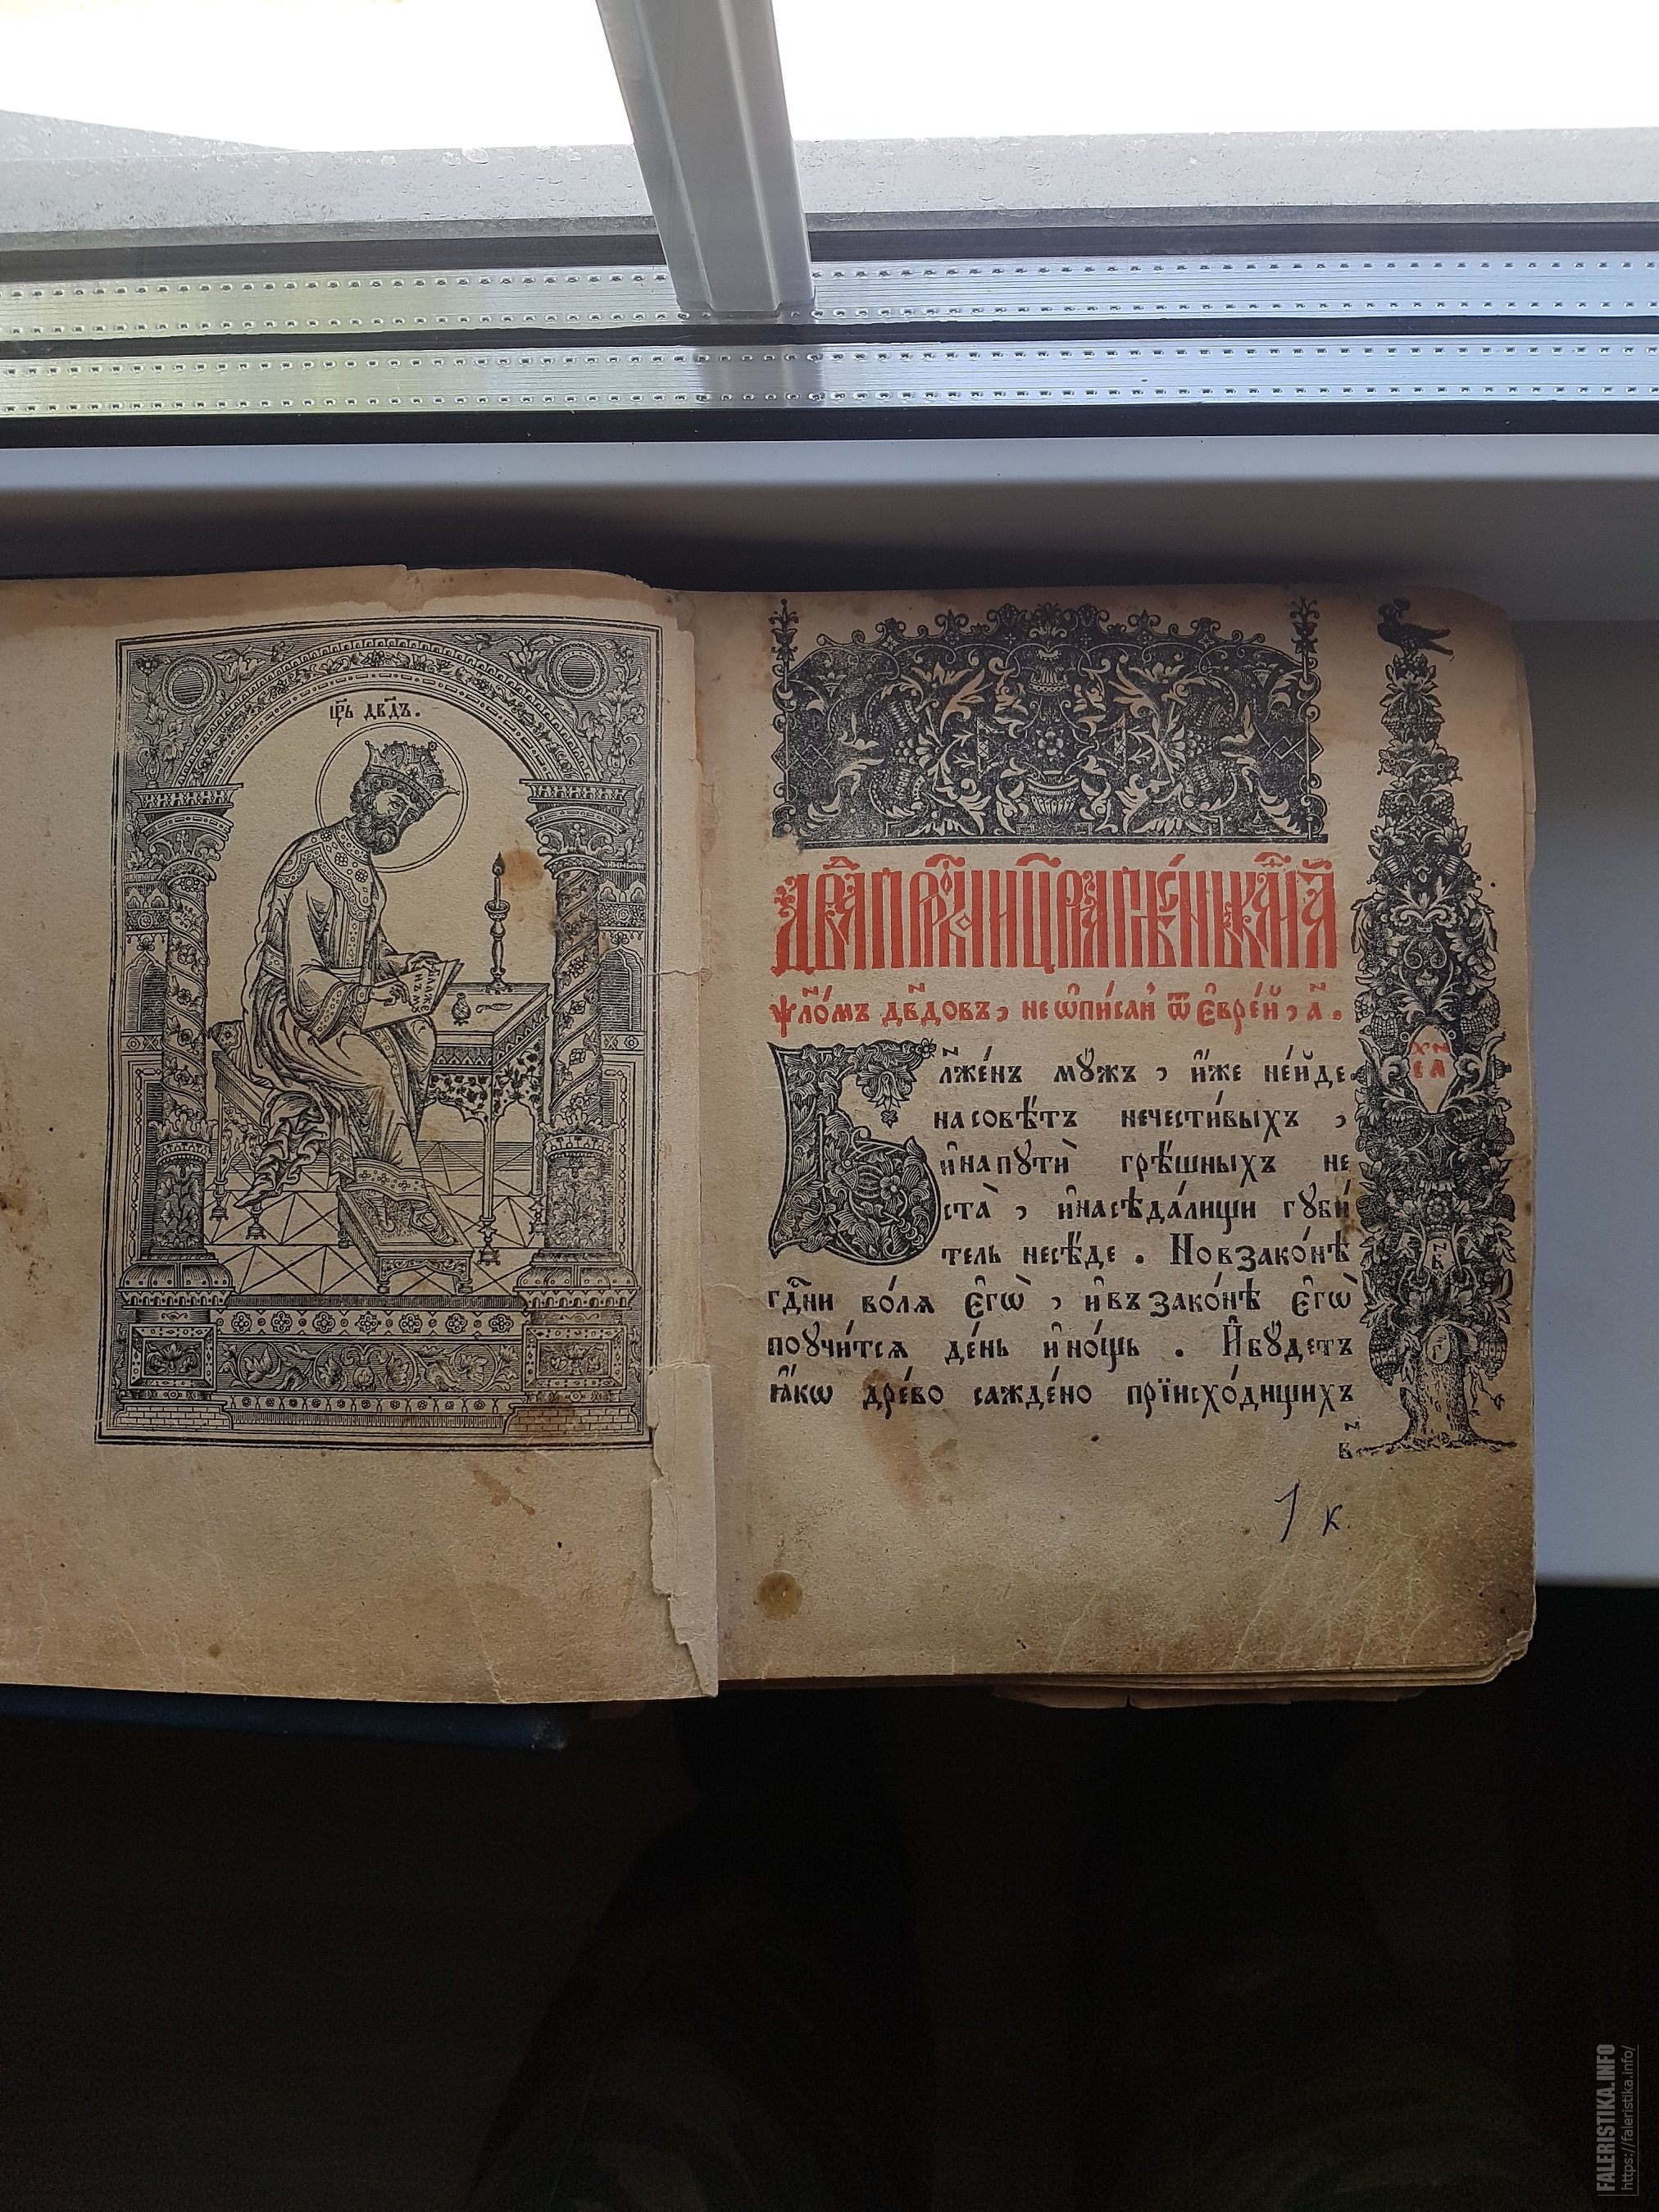 цр҃ь дв҃дъ.
бл҃же́нъ
мꙋ́жъ
дв҃да прⷪ҇ро́ка и҆ цр҃ѧ̀ пѣ́снь, каѳі́сма а҃
ѱало́мъ дв҃довъ, не ѡ҆пи́санъ ѿ є҆вре́й, а҃.
Бл҃же́нъ мꙋ́жъ, и҆́же не и҆́де
на совѣ́тъ нечести́выхъ,
и҆ на пꙋти̑ грѣ́шныхъ не
ста̀, и҆ на сѣда́лищи гꙋби́
тель не сѣ́де. Но в зако́нѣ
гдⷭ҇ни во́лѧ є҆гѡ̀, и҆ въ зако́нѣ є҆гѡ̀
поꙋчи́тсѧ де́нь и҆ но́щь. И҆ бꙋ́детъ
ꙗ҆́кѡ дре́во саждено прїисхо́дищихъ
в҃
1 к.
FALERISTIKA.INFO
https://faleristika.info/